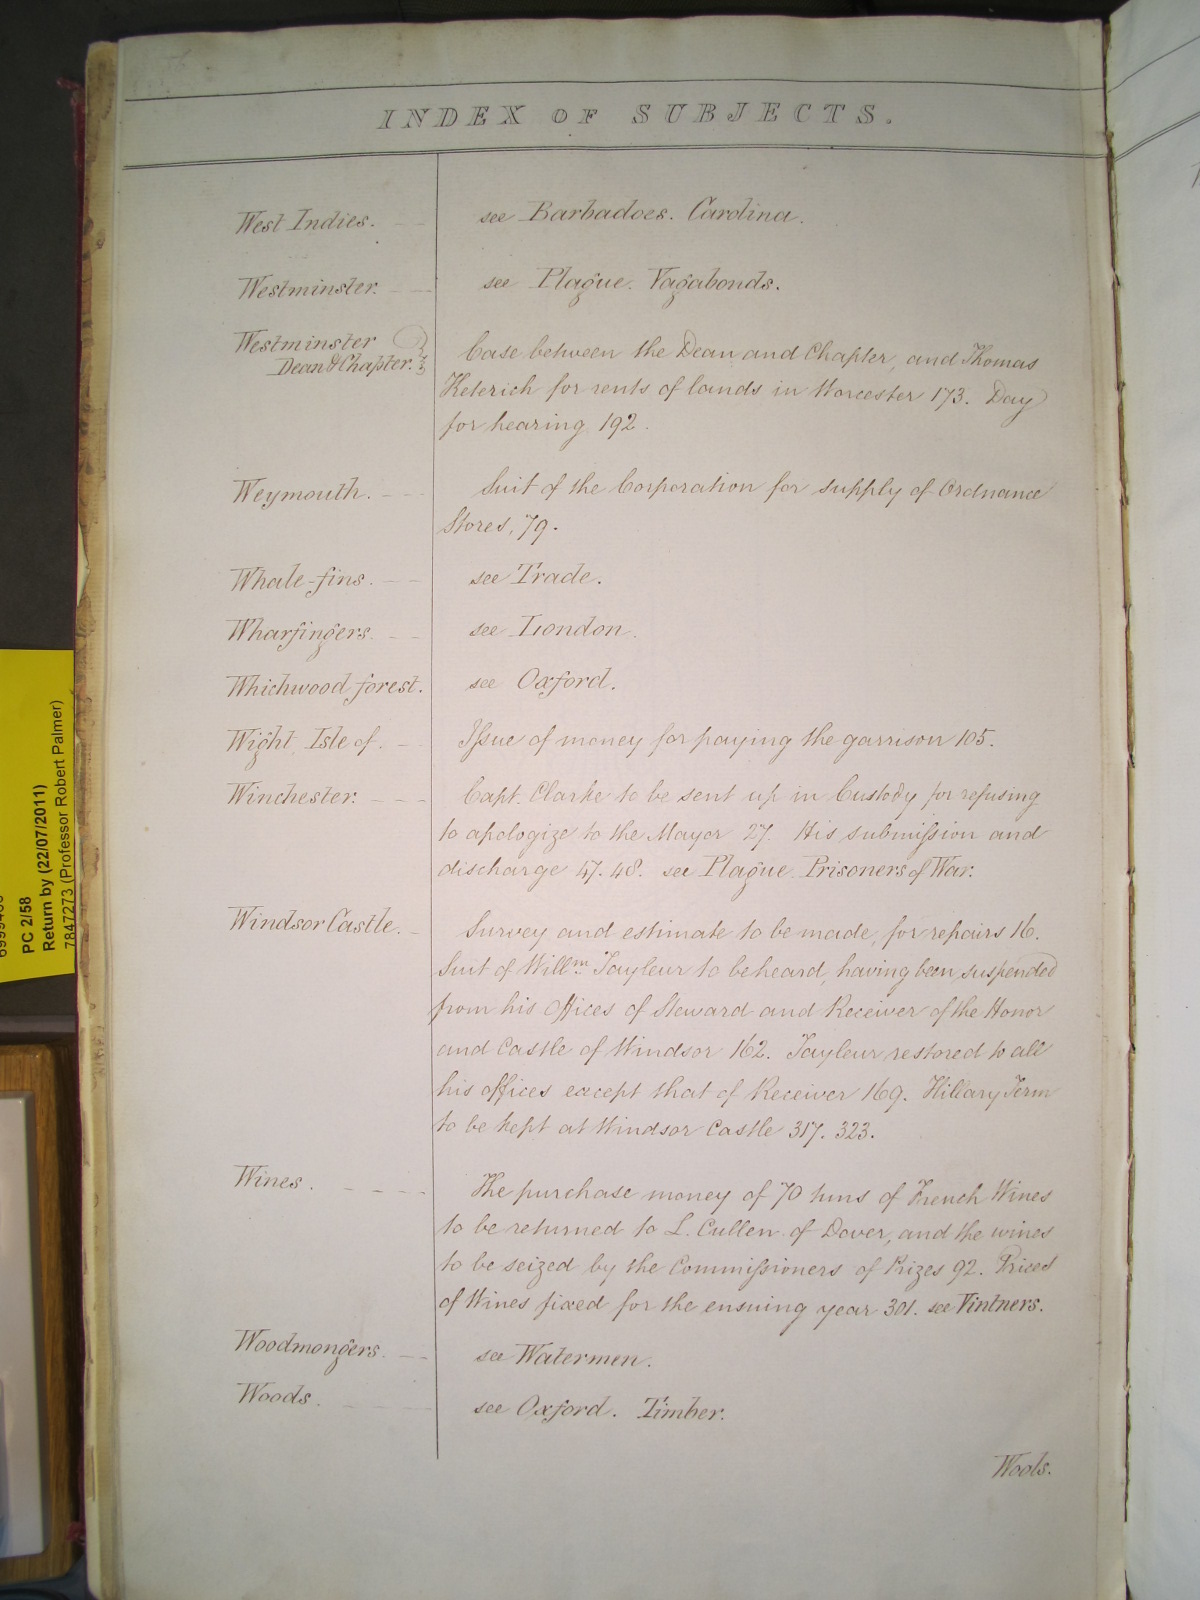 INDEX OF SUBJECTS.
West Indies. see Barbadoes. Carolina.
Westminster. see Plague. Vagabonds.
Westminster
Dean & Chapter. Case between the Dean and Chapter, and Thomas
Keterich for rents of lands in Worcester 173. Day
for hearing 192.
Weymouth. Suit of the Corporation for supply of Ordnance
Stores, 79.
Whale-fins. see Trade.
Wharfingers. see London.
Whichwood forest. see Oxford.
Wight, Isle of. Issue of money for paying the garrison 105.
Winchester. Capt. Clarke to be sent up in Custody for refusing
to apologize to the Mayor 27. His submission and
discharge 47. 48. see Plague. Prisoners of War.
Windsor Castle. Survey and estimate to be made, for repairs 16.
Suit of Willm. Tayleur to be heard, having been suspended
from his Offices of Steward and Receiver of the Honor
and Castle of Windsor 162. Tayleur restored to all
his offices except that of Receiver 169. Hillary Term
to be kept at Windsor Castle 317. 323.
Wines. The purchase money of 70 tuns of French Wines
to be returned to L. Cullen of Dover, and the wines
to be seized by the Commissioners of Prizes 92. Prices
of Wines fixed for the ensuing year 301. see Vintners.
Woodmongers. see Watermen.
Woods. see Oxford. Timber.
Wools.
PC 2/58
Return by (22/07/2011)
7847273 (Professor Robert Palmer)